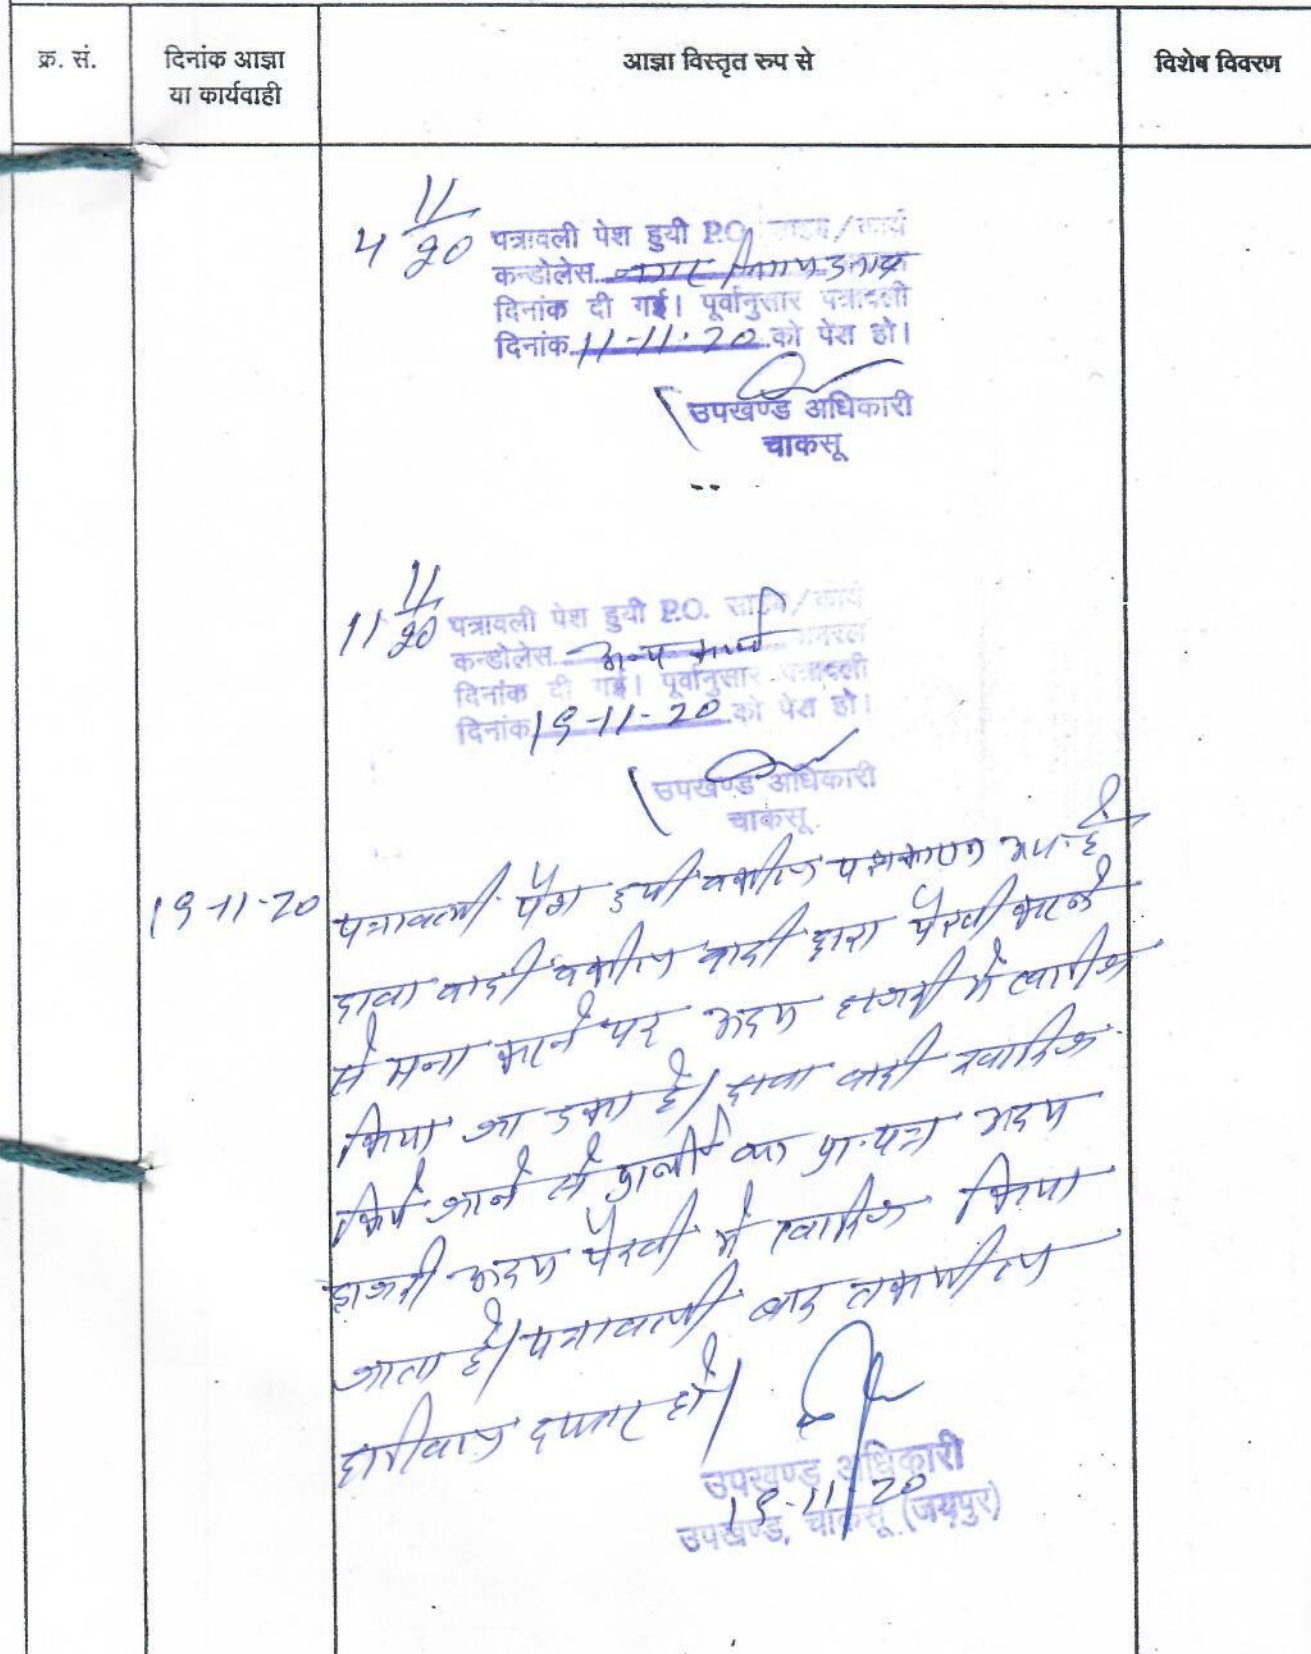 क्र. सं.
दिनांक आज्ञा
या कार्यवाही
आज्ञा विस्तृत रुप से
विशेष विवरण
4 11/20
पत्रावली पेश हुयी P.O. साहब/कार्य
कन्डोलेस
दिनांक दी गई। पूर्वानुसार पत्रावली
दिनांक 11-11-20 को पेश हो।
उपखण्ड अधिकारी
चाकसू
11 11/20
पत्रावली पेश हुयी P.O. साहब/कार्य
कन्डोलेस अन्य कार्य
दिनांक दी गई। पूर्वानुसार पत्रावली
दिनांक 19-11-20 को पेश हो।
उपखण्ड अधिकारी
चाकसू
19-11-20
पत्रावली पेश हुयी वकील पक्षकारान उप. है
दावा वादी वकील वादी द्वारा पैरवी करने
से मना करने पर अदम हाजरी में खारीज
किया जा चुका है। दावा वादी खारिज
किये जाने से प्रार्थी का प्रा.पत्र अदम
हाजरी अदम पैरवी में खारिज किया
जाता है। पत्रावली बाद तकमील
दाखिल दफ्तर हो।
उपखण्ड अधिकारी
19-11-20
उपखण्ड, चाकसू (जयपुर)